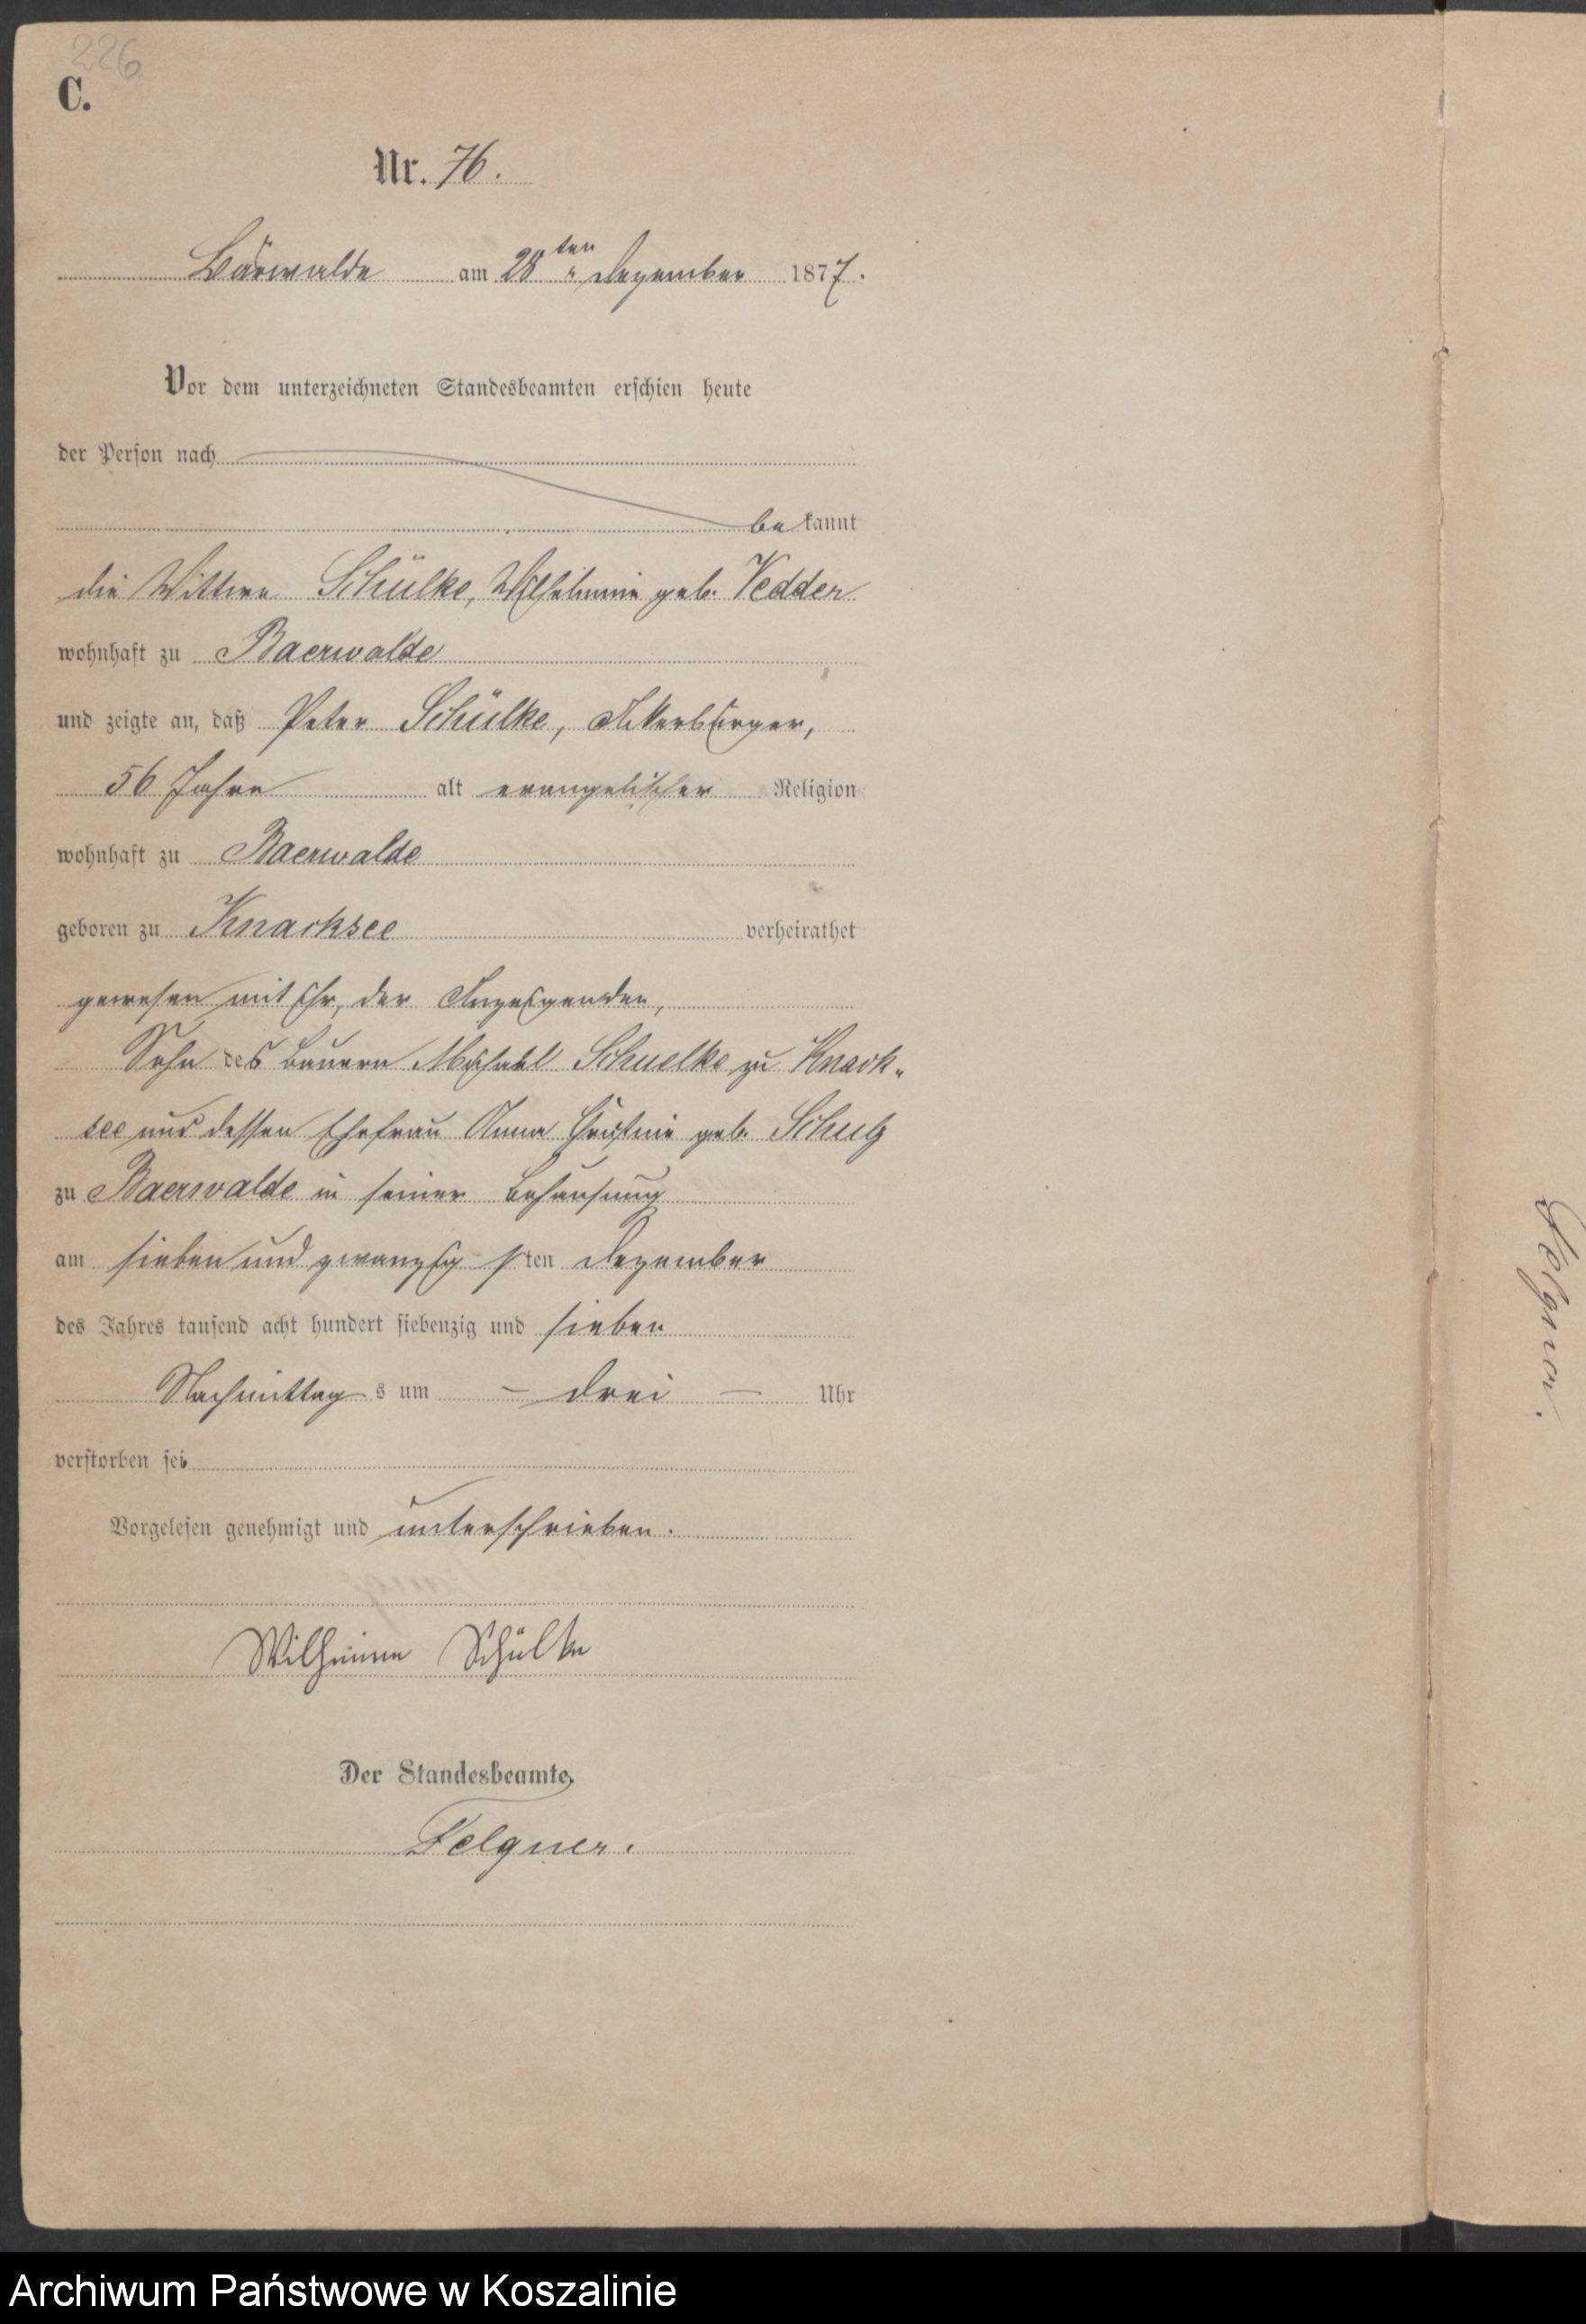 226
C.
Nr. 76.
Bärwalde am 28ten Dezember 1877.
Vor dem unterzeichneten Standesbeamten erschien heute
der Person nach
bekannt
die Wittwe Schülke, Wilhelmine geb. Vedder
wohnhaft zu Baerwalde
und zeigte an, daß Peter Schülke, Ackerbürger,
56 Jahre alt evangelischer Religion
wohnhaft zu Baerwalde
geboren zu Knacksee verheirathet
gewesen mit ihr, der Anzeigenden,
Sohn des Bauern Michael Schuelke zu Knack-
see und dessen Ehefrau Anna Christine geb. Schulz
zu Baerwalde in seiner Behausung
am sieben und zwanzigsten Dezember
des Jahres tausend acht hundert siebenzig und sieben
Nachmittags um – drei – Uhr
verstorben sei
Vorgelesen genehmigt und unterschrieben.
Wilhmine Schülke
Der Standesbeamte
Felgner.
Felgner.
Archiwum Państwowe w Koszalinie